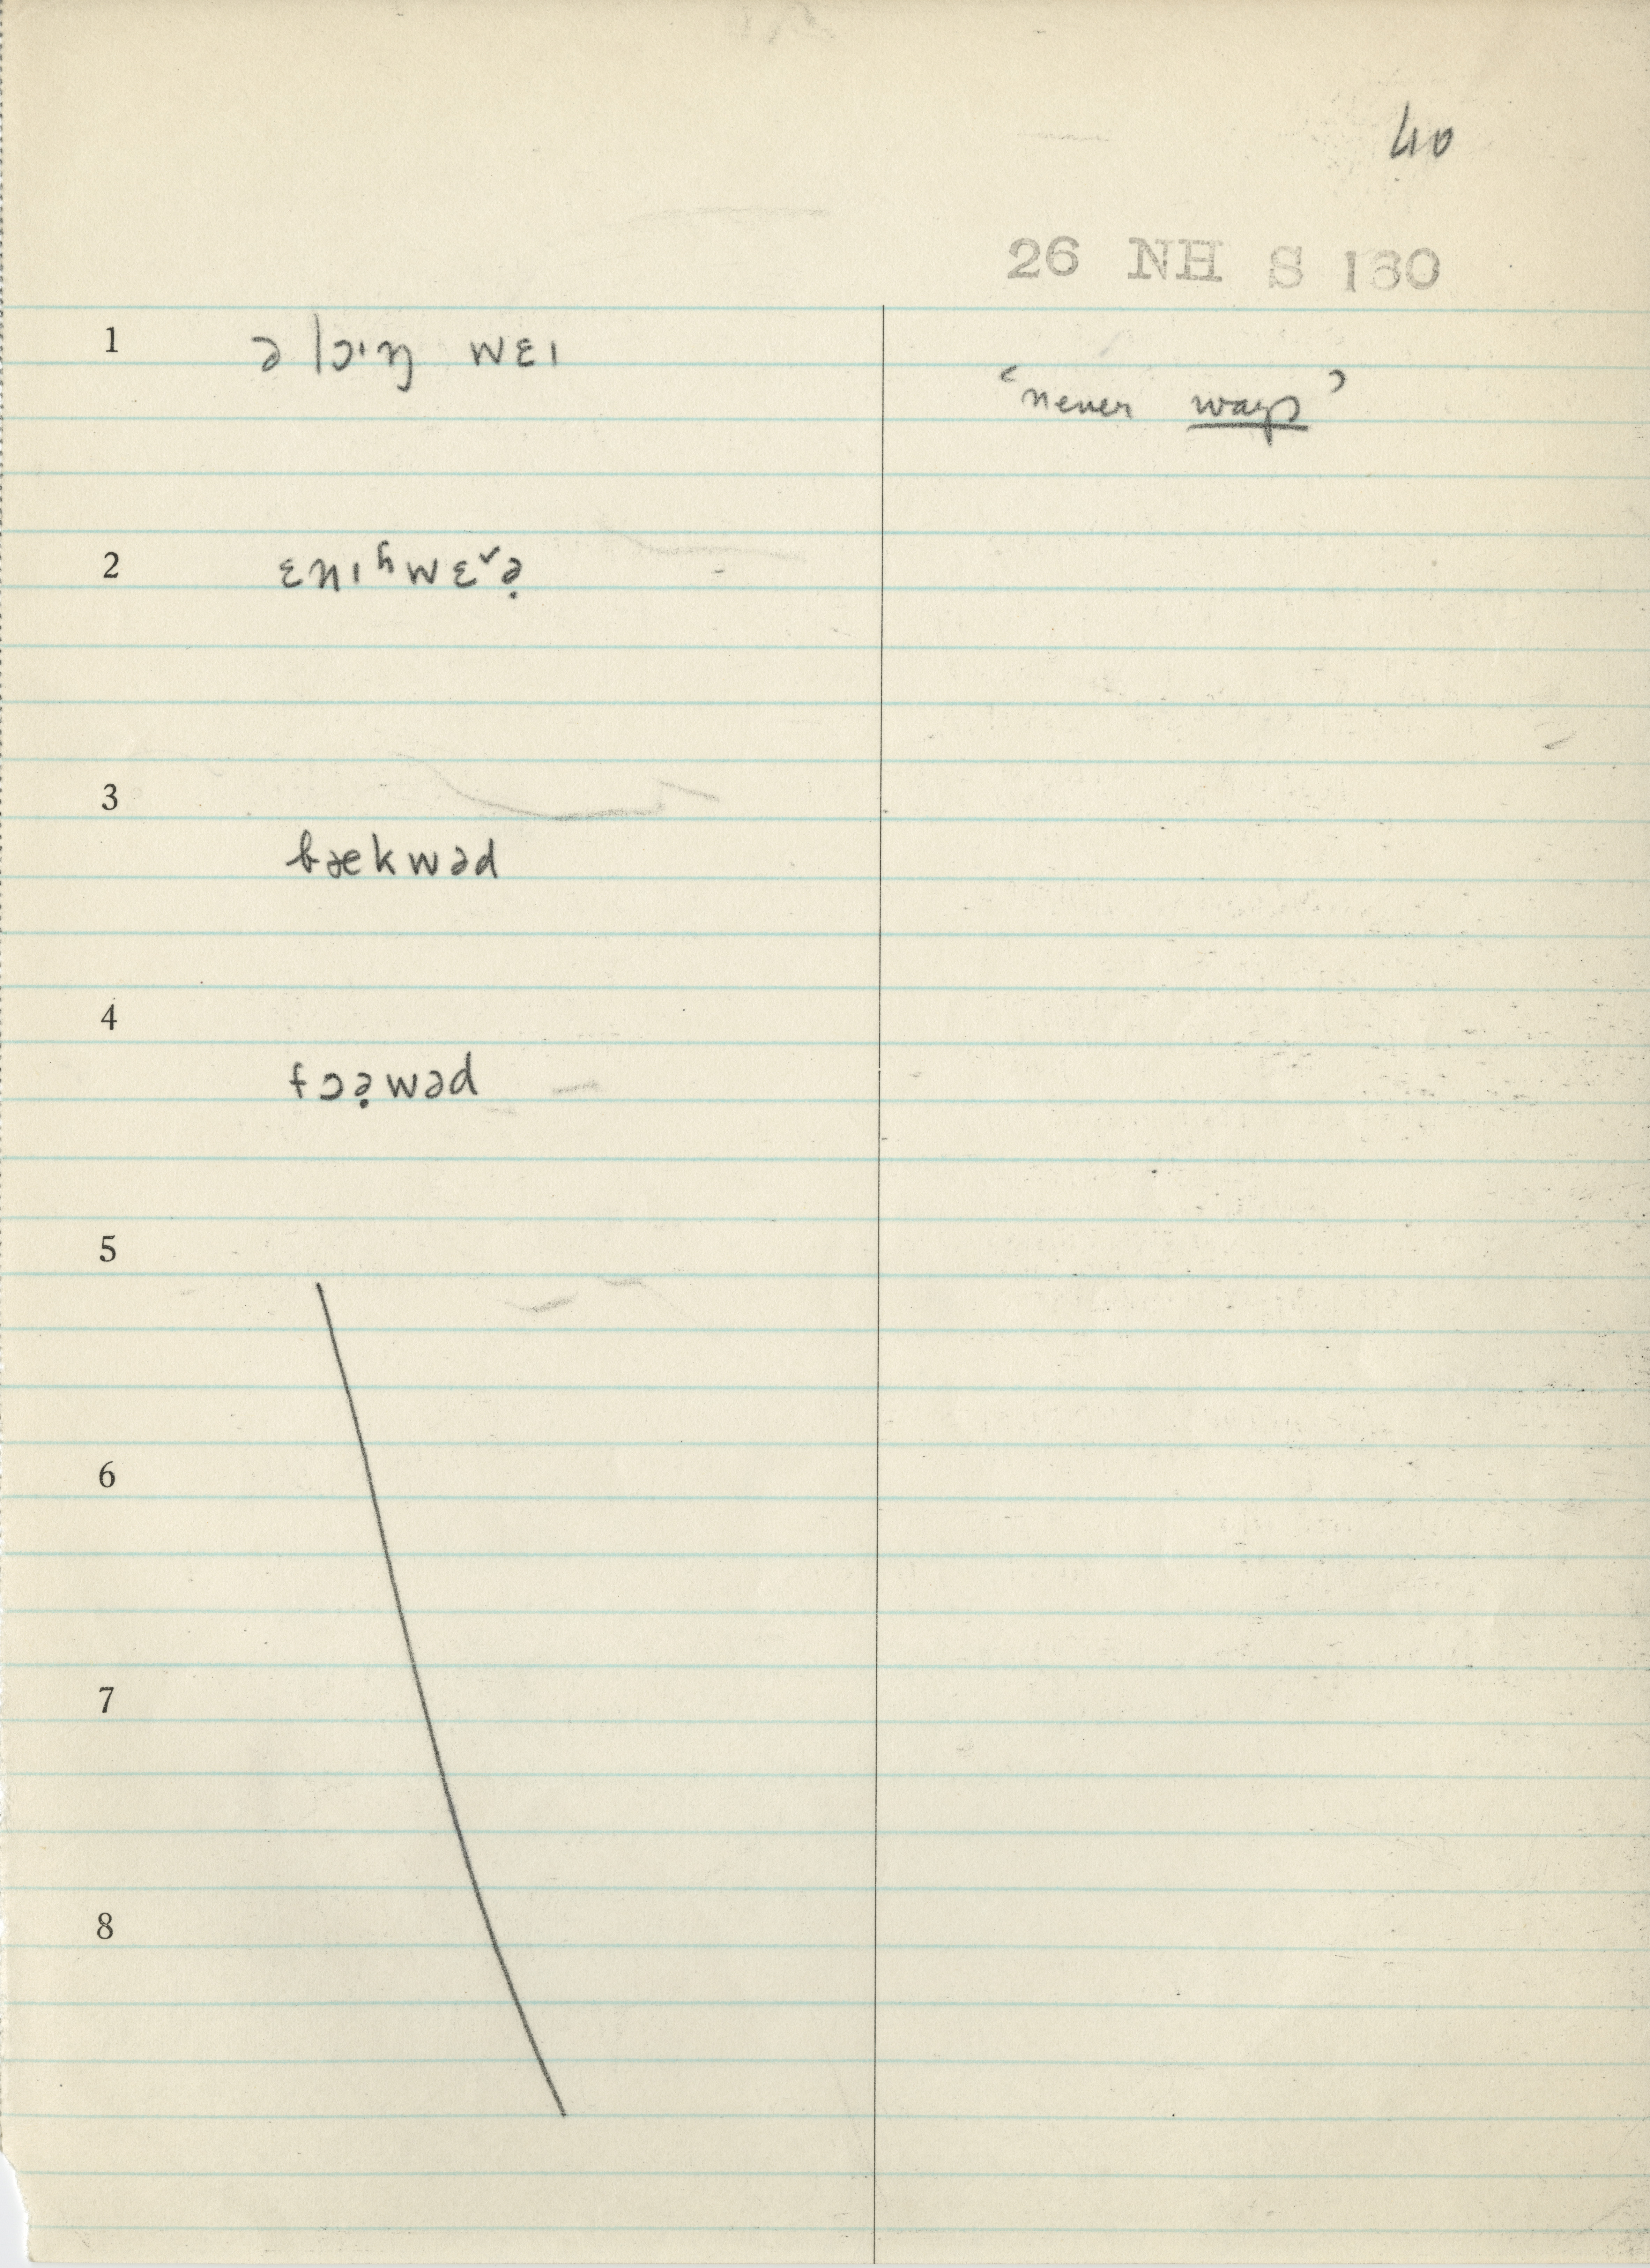 40
26 NH S 130
1 ə lɔ·ŋ wɛɪ
‘never ways’
2 ɛnɪʰwɛˇə̣
3
bækwəd
4
fɔə̣wəd
5
6
7
8